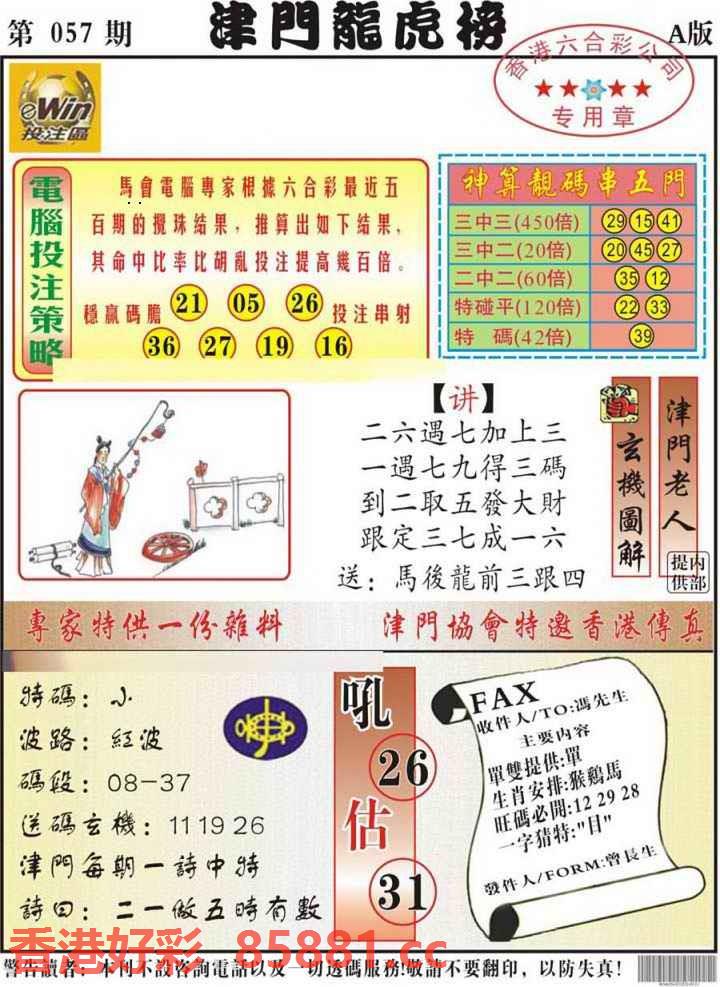 第 057 期
津門龍虎榜
A版
香港六合彩公司
★★★★
专用章
eWin
投注區
電腦投注策略
馬會電腦專家根據六合彩最近五
百期的攪珠结果，推算出如下结果，
其命中比率比胡亂投注提高幾百倍。
穩贏碼膽 21 05 26 投注串射
36 27 19 16
神算靚碼串五門
三中三(450倍) 29 15 41
三中二(20倍) 20 45 27
二中二(60倍) 35 12
特碰平(120倍) 22 33
特 碼(42倍) 39
【讲】
二六遇七加上三
一遇七九得三碼
到二取五發大財
跟定三七成一六
送：馬後龍前三跟四
玄機圖解
津門老人
内部提供
專家特供一份雜料
津門協會特邀香港傳真
特碼：小
波路：紅波
碼段：08-37
送碼玄機：11 19 26
津門每期一詩中特
詩曰：二一做五時有數
吼
26
估
31
FAX
收件人/TO:馮先生
主要内容
單雙提供:單
生肖安排:猴鷄馬
旺碼必開:12 29 28
一字猜特:"目"
發件人/FORM:曾長生
香港好彩 85881.cc
警告讀者：本刊不設咨詢電話以及一切透碼服務!敬請不要翻印，以防失真！